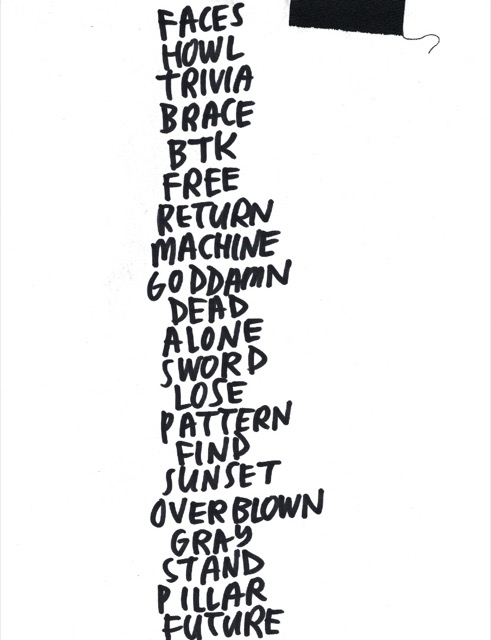 FACES
HOWL
TRIVIA
BRACE
BTK
FREE
RETURN
MACHINE
GODDAMN
DEAD
ALONE
SWORD
LOSE
PATTERN
FIND
SUNSET
OVERBLOWN
GRAY
STAND
PILLAR
FUTURE